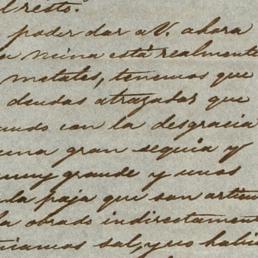 el resto.
poder dar a V. ahora
a mina está realmente
metales, tenemos que
deudas atrazadas que
ando con la desgracia
una gran sequia y
muy grande y unos
la paja que son articu
la obrado indirectament
niamos sal, y no habi